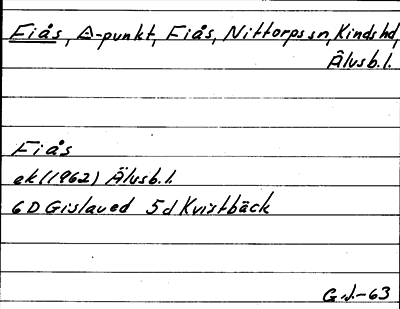 Fiås, △-punkt, Fiås, Nittorps sn, Kinds hd,
Älvsb.l.
Fiås
ek (1962) Älvsb.l.
6D Gislaved 5d Kvistbäck
G.J.-63